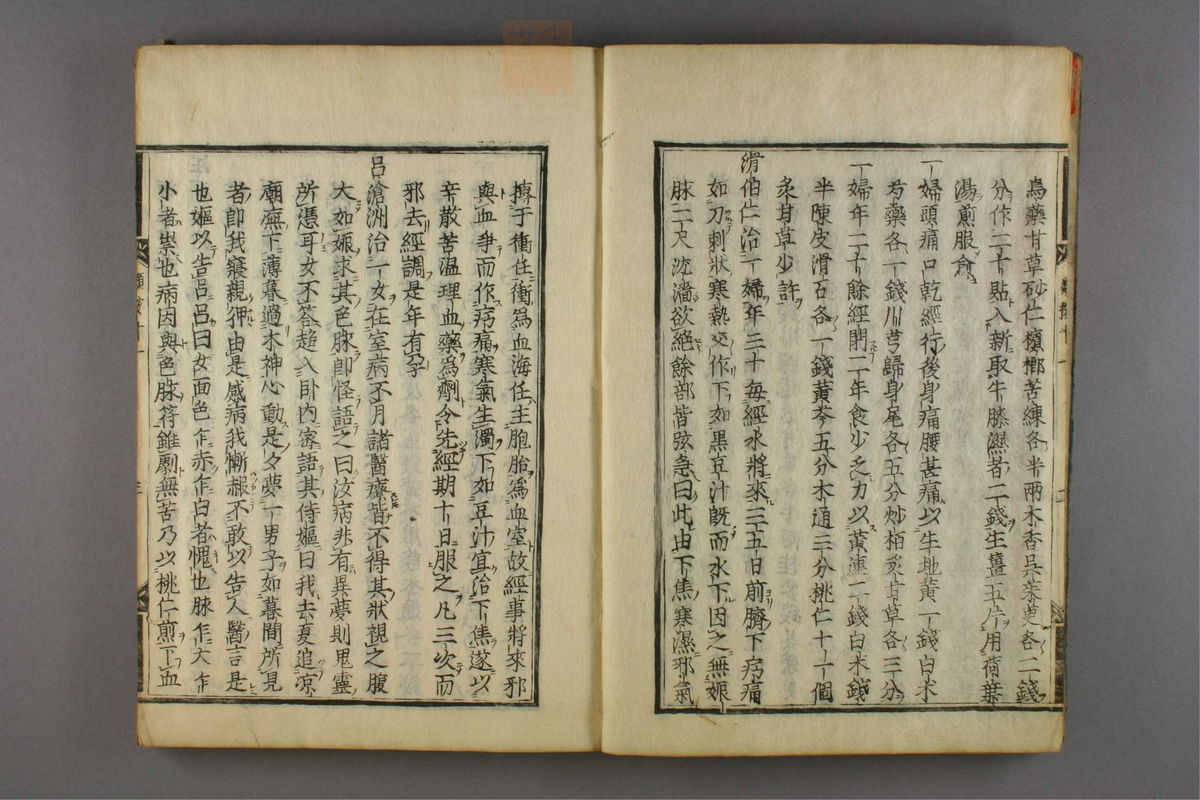 烏藥甘草砂仁檳榔苦練各半兩木香吳茱萸各二錢
分作二十貼入新取牛膝濕者二錢生薑五片用荷葉
湯煎服愈
一婦頭痛口乾經行後身痛腰甚痛以生地黃一錢白朮
芍藥各一錢川芎歸身尾各五分炒栢炙甘草各三分
一婦年二十餘經閉二年食少乏力以黃連二錢白朮錢
半陳皮滑石各一錢黃芩五分木通三分桃仁十一個
炙甘草少許
滑伯仁治一婦年三十每經水將來三五日前臍下㽲痛
如刀刺狀寒熱交作下如黑豆汁既而水下因之無娠
脉二尺沈濇欲絕餘部皆弦急曰此由下焦寒濕邪氣
搏于衝任衝爲血海任主胞胎爲血室故經事將來邪
與血爭而作㽲痛寒氣生濁下如豆汁宜治下焦遂以
辛散苦温理血藥爲劑令先經期十日服之凡三次而
邪去經調是年有孕
呂滄洲治一女在室病不月諸醫療皆不得其狀視之腹
大如娠求其色脉即怪語之曰汝病非有異夢則鬼靈
所憑耳女不答趨入卧内密語其侍嫗曰我去夏追凉
廟廡下薄暮過木神心動是夕夢一男子如暮間所見
者即我寢親狎由是感病我慚赧不敢以告人醫言是
也嫗以告呂呂曰女面色乍赤乍白者愧也脉乍大乍
小者祟也病因與色脉符雖劇無苦乃以桃仁煎下血